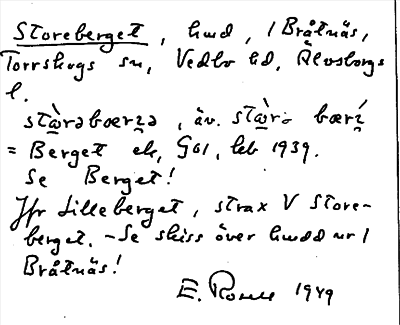 Storeberget, hmd, 1 Bråtnäs,
Torrskogs sn, Vedbo hd, Älvsborgs
l.
stæ̀rəbœrʒə, äv. stæ̀rə bœrʒ́
= Berget ek, GSI, heb 1939.
Se Berget!
Jfr Lilleberget, strax V Store-
berget. - Se skiss över hmdd nr 1
Bråtnäs!
E. Rosell 1949